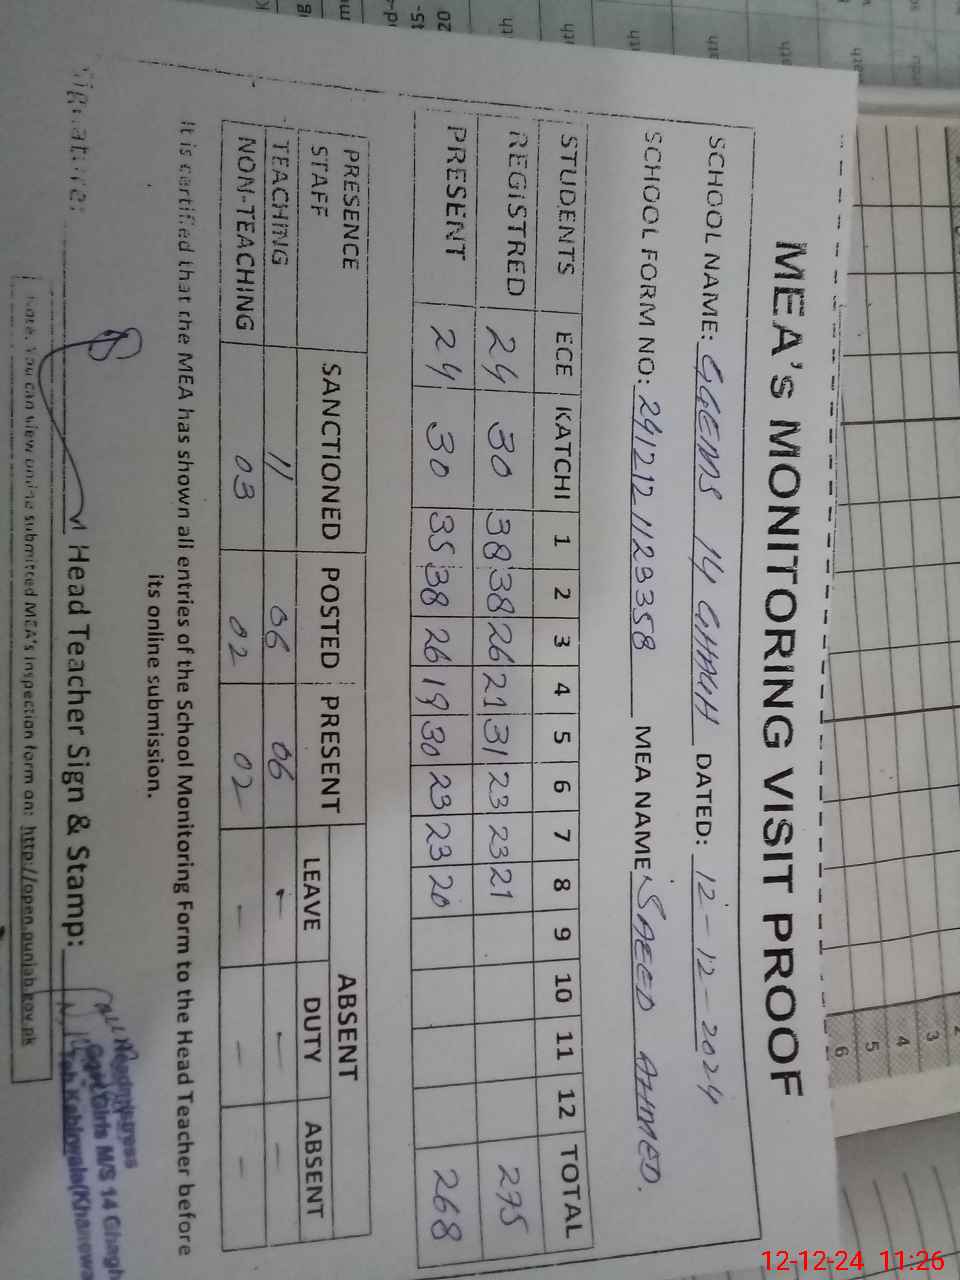 MEA's MONITORING VISIT PROOF
SCHOOL NAME: GGEMS 14 GHAGH DATED: 12-12-2024
SCHOOL FORM NO: 2412121123358 MEA NAME: SAEED AHMED.
STUDENTS ECE KATCHI 1 2 3 4 5 6 7 8 9 10 11 12 TOTAL
REGISTRED 24 30 38 38 26 21 31 23 23 21 275
PRESENT 24 30 35 38 26 19 30 23 23 20 268
PRESENCE SANCTIONED POSTED PRESENT ABSENT
STAFF LEAVE DUTY ABSENT
TEACHING 11 06 06 - - -
NON-TEACHING 03 02 02 - - -
It is certified that the MEA has shown all entries of the School Monitoring Form to the Head Teacher before
its online submission.
Signature: Head Teacher Sign & Stamp:
Headmistress
Govt. Girls M/S 14 Ghagh
Teh Kabirwala (Khanewa
Note: You can view online submitted MEA's inspection form on: http://open.punjab.gov.pk
3
4
5
6
20
12-12-24 11:26